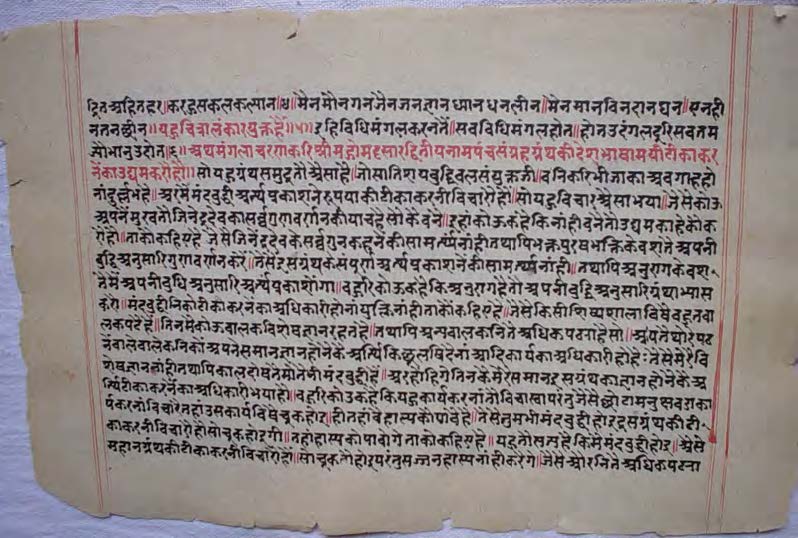 हित अहितहर॥करहु सकल कल्पान॥४॥मैन मौन गन जैन जन ज्ञान ध्यान धन लीन॥मैन मान विन दान घन॥एन ही
न तन छीन॥यह चित्रालंकार युक्त है॥५॥इहि विधि मंगल करन तैं॥सब विधि मंगल होत॥होत उदंगल दूरि सब तम
ज्यौं भानु उदोत॥६॥अथ मंगलाचरण करि श्रीमद्गोमट्टसार द्वितीय नाम पंचसंग्रह ग्रंथ की देश भाषामयी टीका कर
नें का उद्यम करौं हौं॥सो यह ग्रंथ समुद्र तौ ऐसा है॥जो सातिशय बुद्धि बल संयुक्त जी॥वनि करि भी जाका अवगाहन हो
नां दुर्ल्लभ है॥अर मैं मंद बुद्धी अर्थ प्रकाशनें रूप या की टीका करनी विचारौं हौं॥सो यहु विचार ऐसा भया॥जैसे कोऊ
अपने मुख तैं जिनेंद्र देव का सर्व गुण वर्णन कीया चाहै सो कैसे बनै॥इहां कोऊ कहै कि नांही बनै तौ उद्यम काहे कौं क
रौ हौ॥ताकौं कहिए है जैसे जिनेंद्र देव के सर्व गुन कहनें की सामर्थ्य नांही तथापि भक्त पुरुष भक्ति के वश तैं अपनी
बुद्धि अनुसारि गुण वर्णन करै॥तैसैं इस ग्रंथ का संपूर्ण अर्थ प्रकाशनें की सामर्थ्य नांही॥तथापि अनुराग के वश
तैं मैं अपनी बुधि अनुसारि अर्थ प्रकाशोंगा॥बहुरि कोऊ कहै कि अनुराग है तौ अपनी बुद्धि अनुसारि ग्रंथाभ्यास
करौ॥मंदबुद्धीनि कौं टीका करनें का अधिकारी होनां युक्त नांही ताकौं कहिए है॥जैसे किसी शिष्यशाला विषैं बहुत बा
लक पढै हैं॥तिन मैं कोऊ बालक विशेष ज्ञान रहित है॥तथापि अन्य बालकनि तैं अधिक पढ्या है सो॥अपनें थोरे पढ
नें वाले बालकनि कौं अपनें समान ज्ञान होनें के अर्थि किछू लिखि देनां आदि कार्य का अधिकारी हो है॥तैसैं मेरे वि
शेष ज्ञान नांही तथापि काल दोष तैं मोतैं भी मंदबुद्धी हैं॥अर होंहिगे तिन कैं मेरे समान इस ग्रंथ का ज्ञान होनें के अ
र्थि टीका करनें का अधिकारी भया हौं॥बहुरि कोऊ कहै कि यहु कार्य करनां तौ विचार्या परंतु जैसे छोटा मनुष्य बडा का
र्य करनां विचारै तहां उस कार्य विषैं चूक होइ॥ही तहां वै हास्य कौं पावै है॥तैसैं तुम भी मंदबुद्धी होइ इस ग्रंथ की टी
का करनी विचारौ हौ सो चूक होइगी॥तहां हास्य कौं पावोगे ताकौं कहिए है॥यह तौ सत्य है कि मैं मंदबुद्धी होइ॥ऐसे
महान ग्रंथ की टीका करनी विचारौं हौं॥सो चूक तौ होइ परंतु सज्जन हास्य नांही करेंगे॥जैसे औरनि तैं अधिक पढ्या